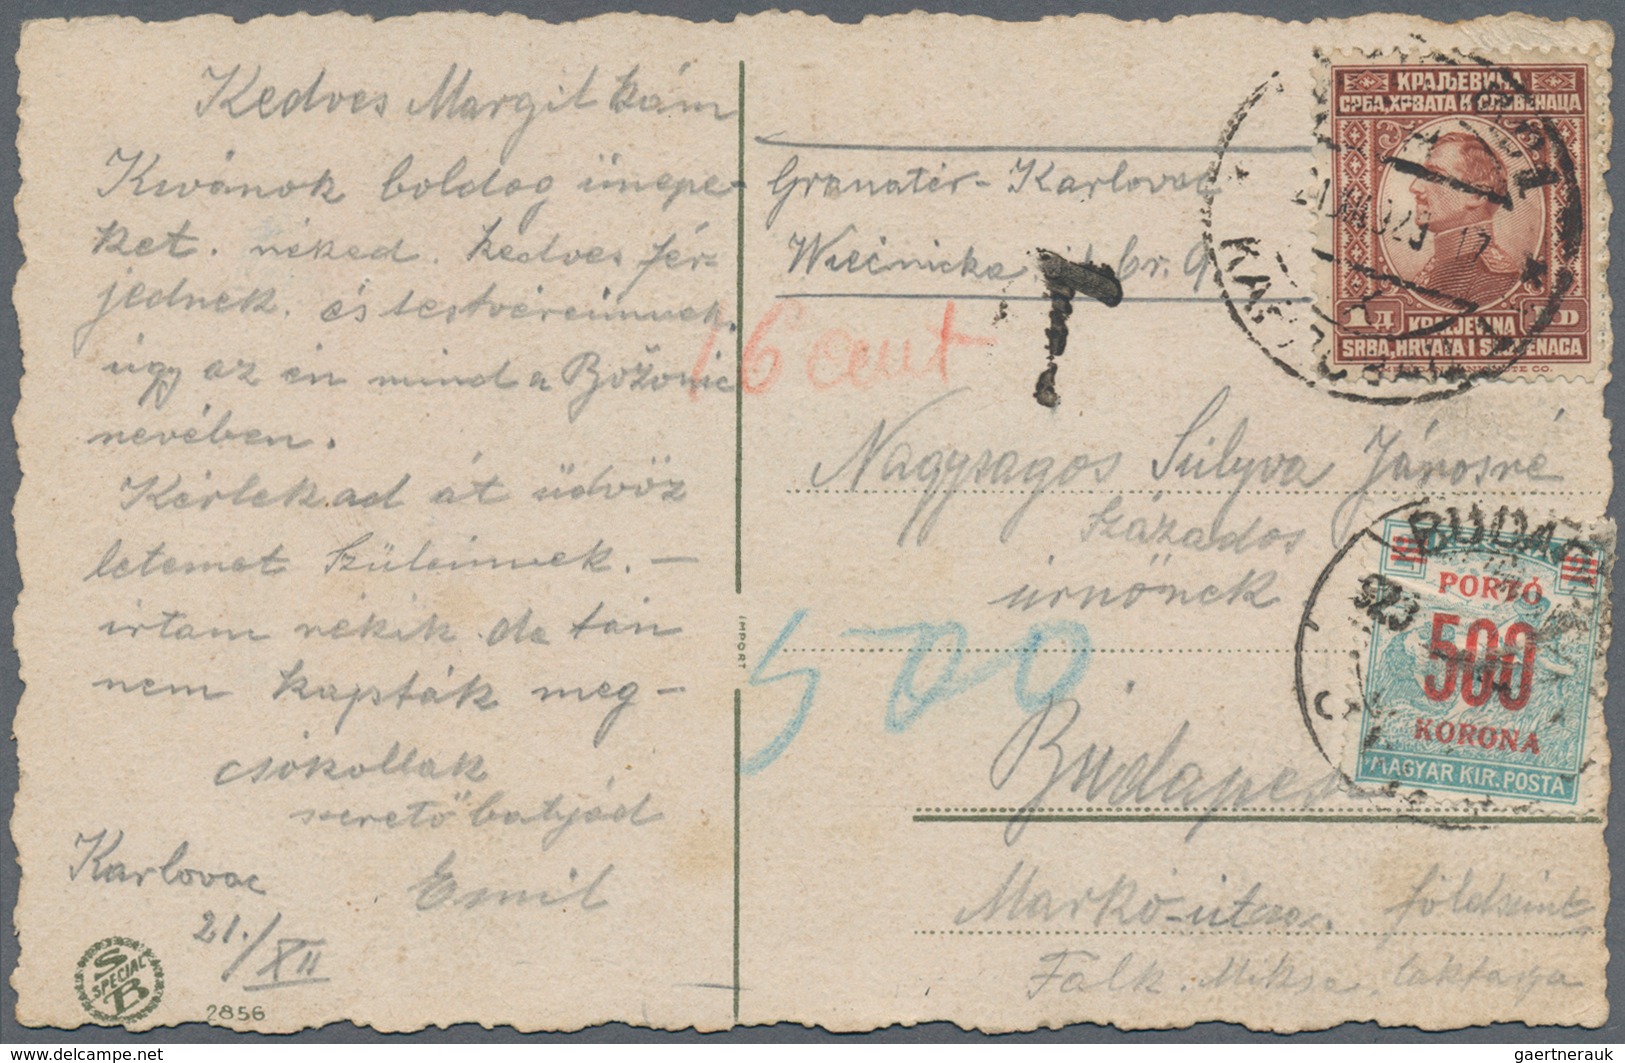 Kedves Margit kám
Kivánok boldog ünepe-
ket. néked. kedves fér-
jednek. és testvéreinnek.
úgy az én mind a Božonic
nevében.
Kérlek ad át üdvöz
letemet Szüleinnek. —
irtam nékik de tán
nem kapták meg —
csókollak
szerető batjád
Emil
Karlovac
21./XII
S
SPECIAL
B
2856
IMPORT
Granatér - Karlovac
br. 9
T
16 cent
500
Nagysagos Sulyva Jánosné
Százados
úrnőnek
Budapest
Markó-utca. földszint
Falk. Miksa. laktanya
КРАЉЕВИНА
СРБА, ХРВАТА И СЛОВЕНАЦА
1 Д
1 D
KRALJEVINA
SRBA, HRVATA I SLOVENACA
KARLOVAC
BUDAPEST
923
PORTÓ
500
KORONA
MAGYAR KIR. POSTA
gaertnerauk
http://www.delcampe.net
gaertnerauk